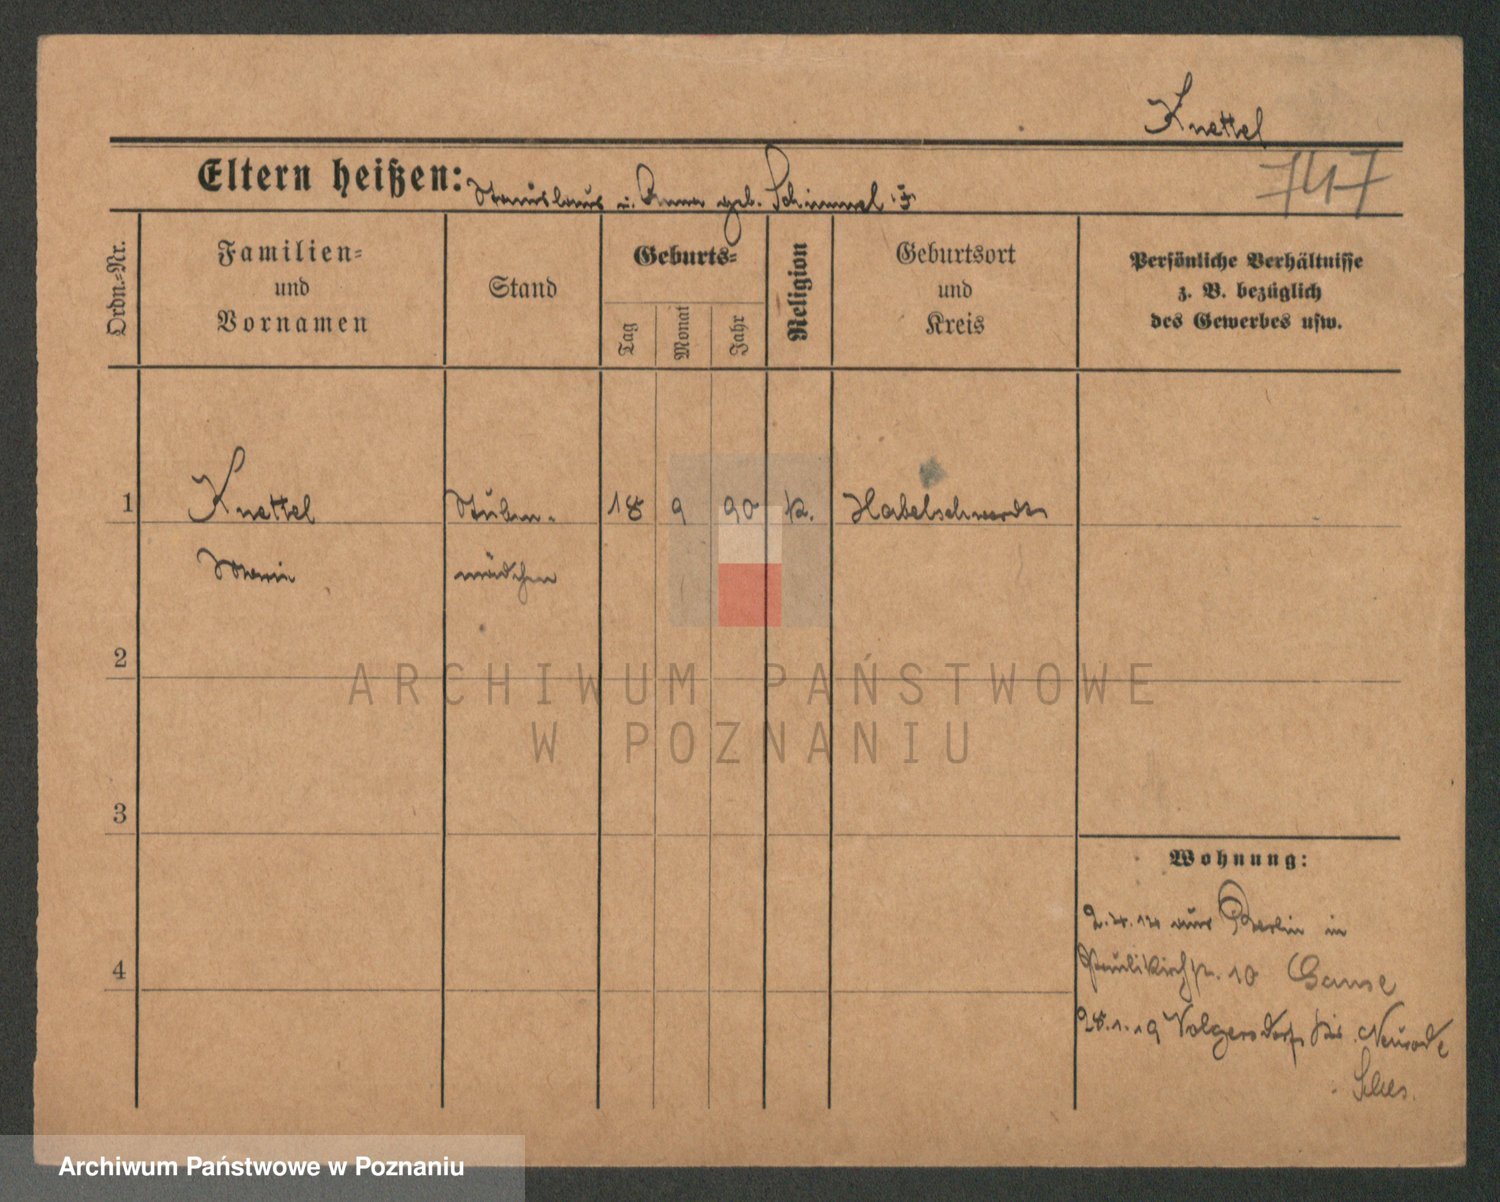 Knettel
747
Eltern heißen: Stanislaus u. Anna geb. Schimmel
Ordn.-Nr.
Familien-
und
Vornamen
Stand
Geburts-
Tag
Monat
Jahr
Religion
Geburtsort
und
Kreis
Persönliche Verhältnisse
z. B. bezüglich
des Gewerbes usw.
1 Knettel Stuben- 18 9 90 k. Habelschwerdt
mädchen
2
3
4
Wohnung:
2.4.14 aus Berlin in
Paulikirchstr. 10 Ganse
28.1.19 Volgersdorf Krs. Neurode
Schles.
ARCHIWUM PAŃSTWOWE
W POZNANIU
Archiwum Państwowe w Poznaniu